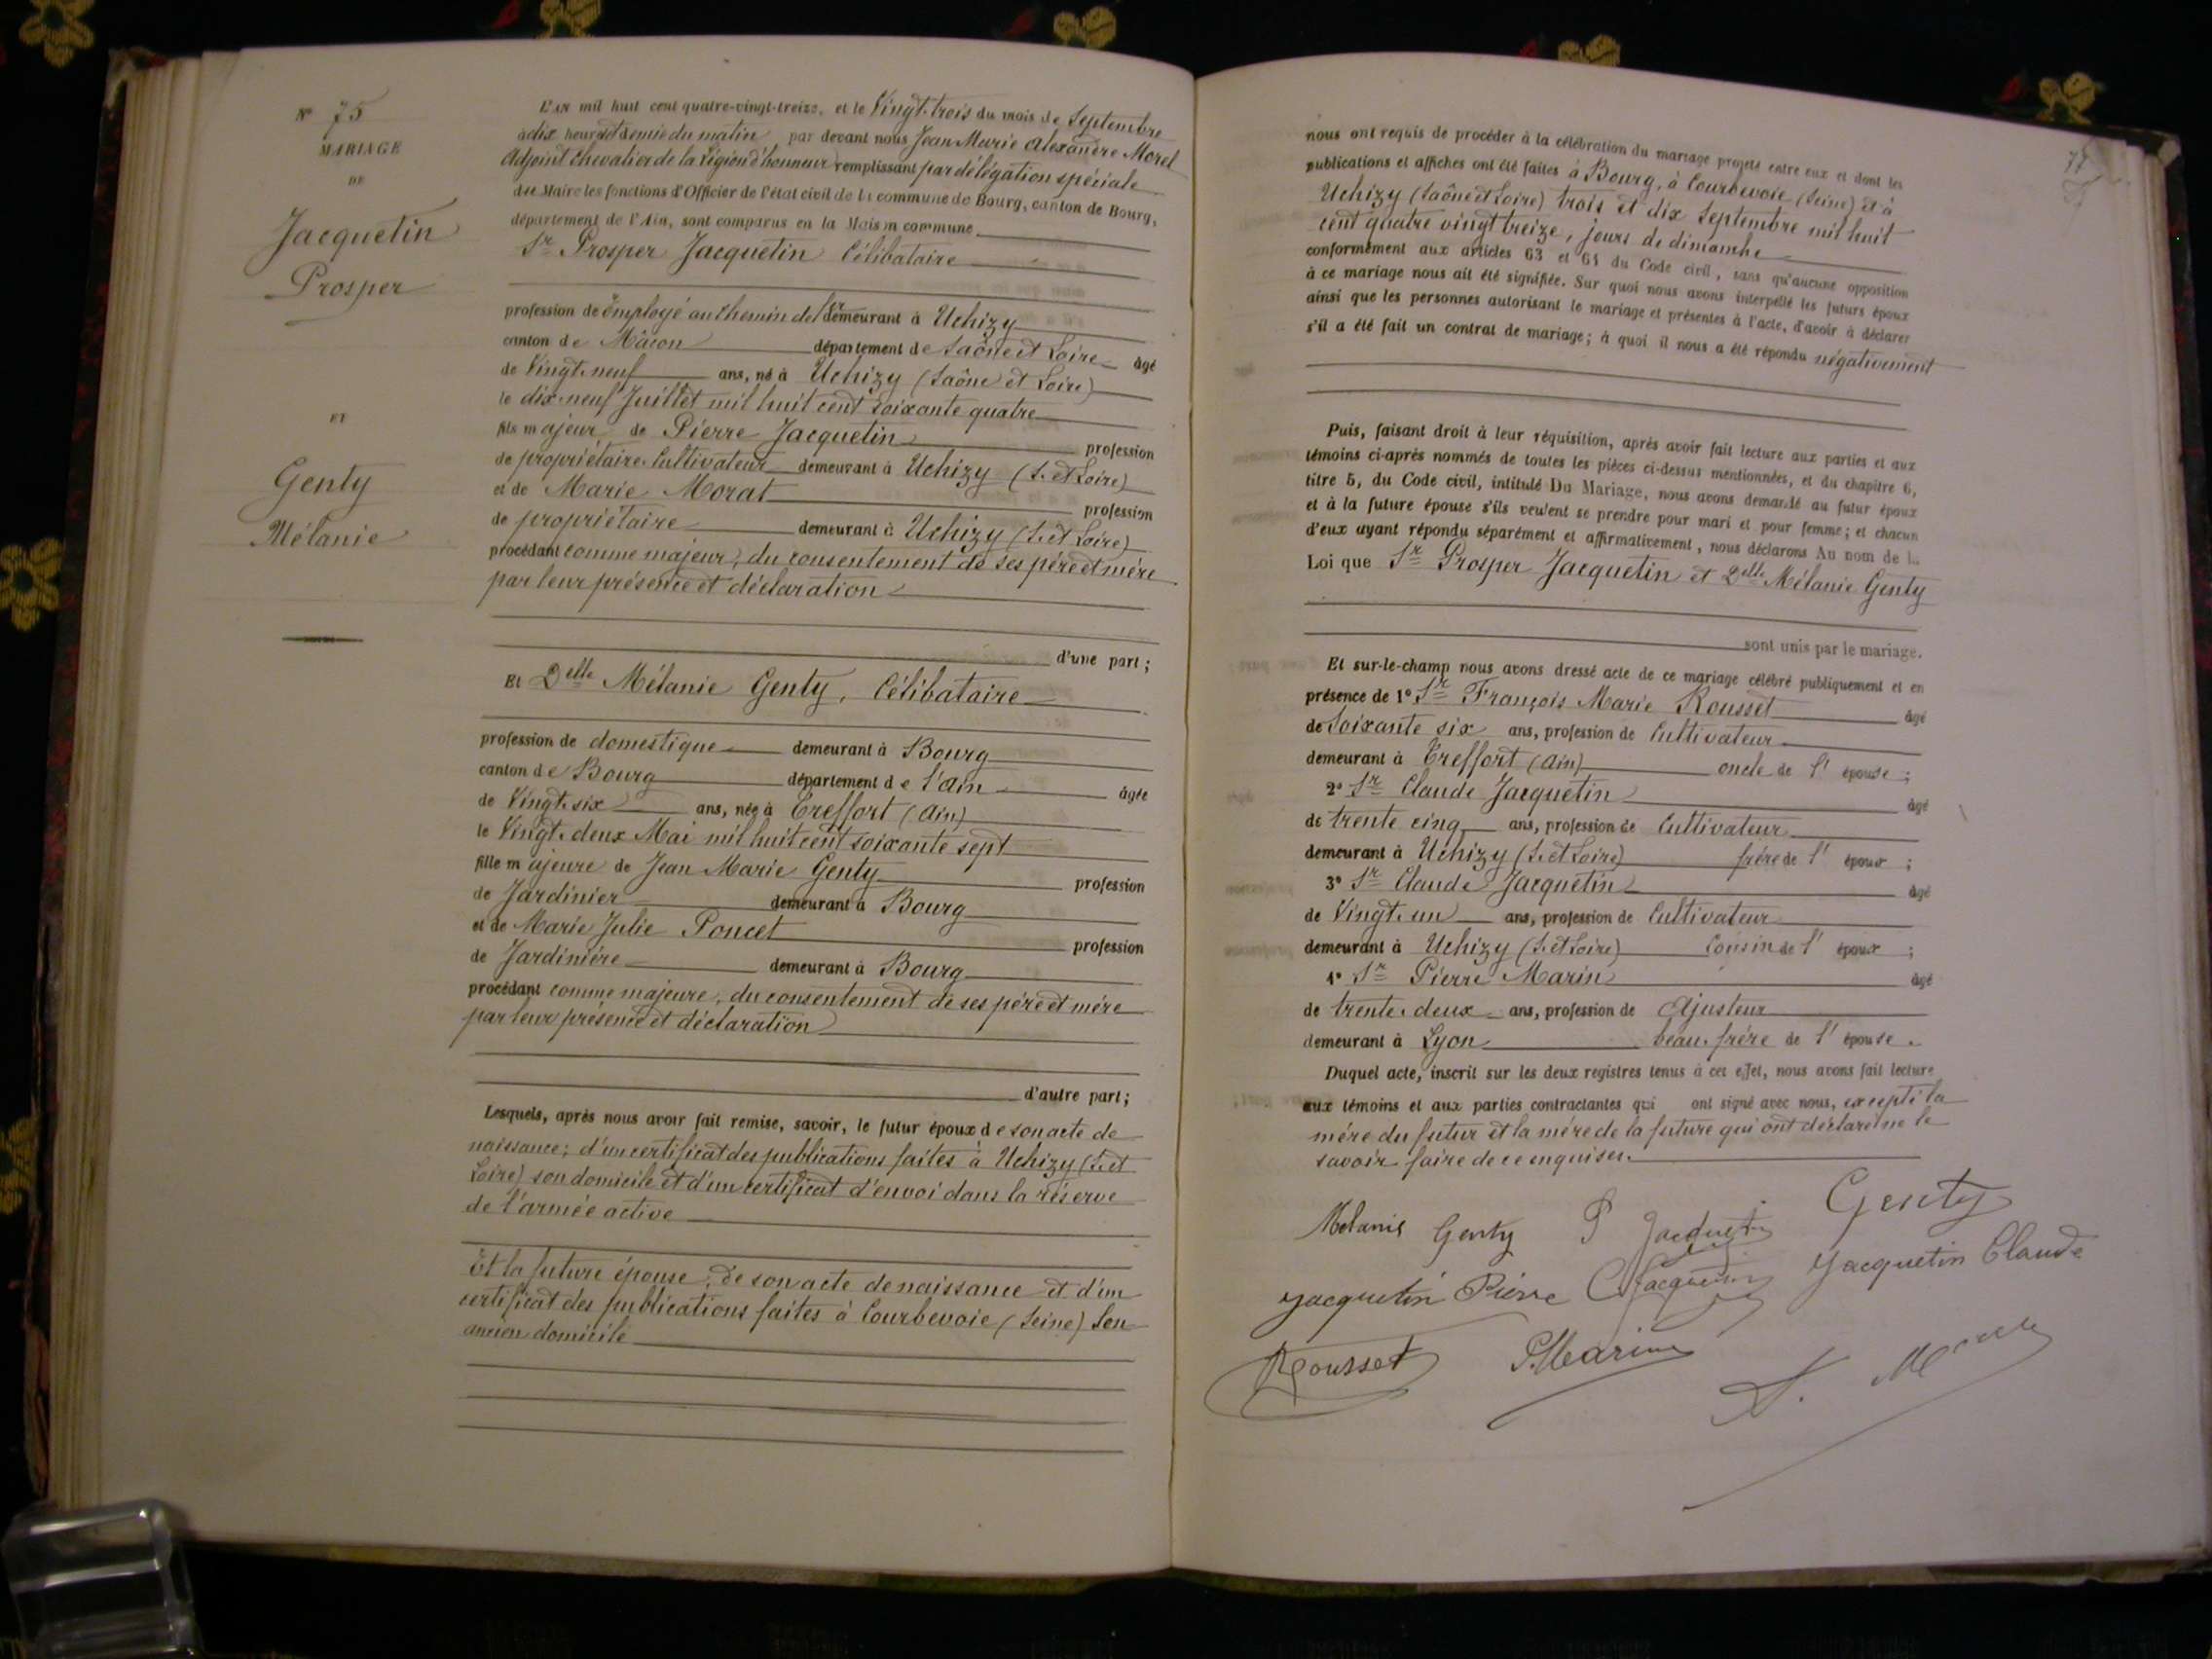 N° 75
MARIAGE
DE
Jacquetin
Prosper
ET
Genty
Mélanie
L'AN mil huit cent quatre-vingt-treize, et le Vingt-trois du mois de Septembre
à dix heures et demie du matin par devant nous Jean Marie Alexandre Morel
Adjoint Chevalier de la Légion d'honneur remplissant par délégation spéciale
du Maire les fonctions d'Officier de l'état civil de la commune de Bourg, canton de Bourg,
département de l'Ain, sont comparus en la Maison commune
Sr Prosper Jacquetin Célibataire
profession de Employé au Chemin de fer demeurant à Uchizy
canton de Mâcon département de Saône et Loire âgé
de Vingt-neuf ans, né à Uchizy (Saône et Loire)
le dix-neuf Juillet mil huit cent soixante quatre
fils majeur de Pierre Jacquetin profession
de propriétaire Cultivateur demeurant à Uchizy (S. et Loire)
et de Marie Morat profession
de propriétaire demeurant à Uchizy (S. et Loire)
procédant comme majeur, du consentement de ses père et mère
par leur présence et déclaration
d'une part ;
Et Delle Mélanie Genty, Célibataire
profession de domestique demeurant à Bourg
canton de Bourg département de l'Ain âgée
de Vingt-six ans, née à Treffort (Ain)
le Vingt-deux Mai mil huit cent soixante sept
fille majeure de Jean Marie Genty profession
de Jardinier demeurant à Bourg
et de Marie Julie Poncet profession
de Jardinière demeurant à Bourg
procédant comme majeure, du consentement de ses père et mère
par leur présence et déclaration
d'autre part ;
Lesquels, après nous avoir fait remise, savoir, le futur époux de son acte de
naissance ; d'un certificat des publications faites à Uchizy (S. et
Loire) son domicile et d'un certificat d'envoi dans la réserve
de l'armée active
Et la future épouse, de son acte de naissance et d'un
certificat des publications faites à Courbevoie (Seine) son
ancien domicile
77
nous ont requis de procéder à la célébration du mariage projeté entre eux et dont les
publications et affiches ont été faites à Bourg, à Courbevoie (Seine) et à
Uchizy (Saône et Loire) trois et dix Septembre mil huit
cent quatre vingt treize, jours de dimanche
conformément aux articles 63 et 64 du Code civil, sans qu'aucune opposition
à ce mariage nous ait été signifiée. Sur quoi nous avons interpellé les futurs époux
ainsi que les personnes autorisant le mariage et présentes à l'acte, d'avoir à déclarer
s'il a été fait un contrat de mariage ; à quoi il nous a été répondu négativement
Puis, faisant droit à leur réquisition, après avoir fait lecture aux parties et aux
témoins ci-après nommés de toutes les pièces ci-dessus mentionnées, et du chapitre 6,
titre 5, du Code civil, intitulé Du Mariage, nous avons demandé au futur époux
et à la future épouse s'ils veulent se prendre pour mari et pour femme ; et chacun
d'eux ayant répondu séparément et affirmativement, nous déclarons Au nom de la
Loi que Sr Prosper Jacquetin et Delle Mélanie Genty
sont unis par le mariage.
Et sur-le-champ nous avons dressé acte de ce mariage célébré publiquement et en
présence de 1° Sr François Marie Rousset âgé
de Soixante six ans, profession de Cultivateur
demeurant à Treffort (Ain) oncle de l'épouse ;
2° Sr Claude Jacquetin âgé
de trente cinq ans, profession de Cultivateur
demeurant à Uchizy (S. et Loire) frère de l'époux ;
3° Sr Claude Jacquetin âgé
de Vingt-un ans, profession de Cultivateur
demeurant à Uchizy (S. et Loire) Cousin de l'époux ;
4° Sr Pierre Marin âgé
de trente-deux ans, profession de Ajusteur
demeurant à Lyon beau-frère de l'épouse.
Duquel acte, inscrit sur les deux registres tenus à cet effet, nous avons fait lecture
aux témoins et aux parties contractantes qui ont signé avec nous, excepté la
mère du futur et la mère de la future qui ont déclaré ne le
savoir faire de ce enquises.
Melanie Genty P Jacquetin Genty
Jacquetin Pierre C Jacquetin Jacquetin Claude
Rousset P. Marin A. Morel